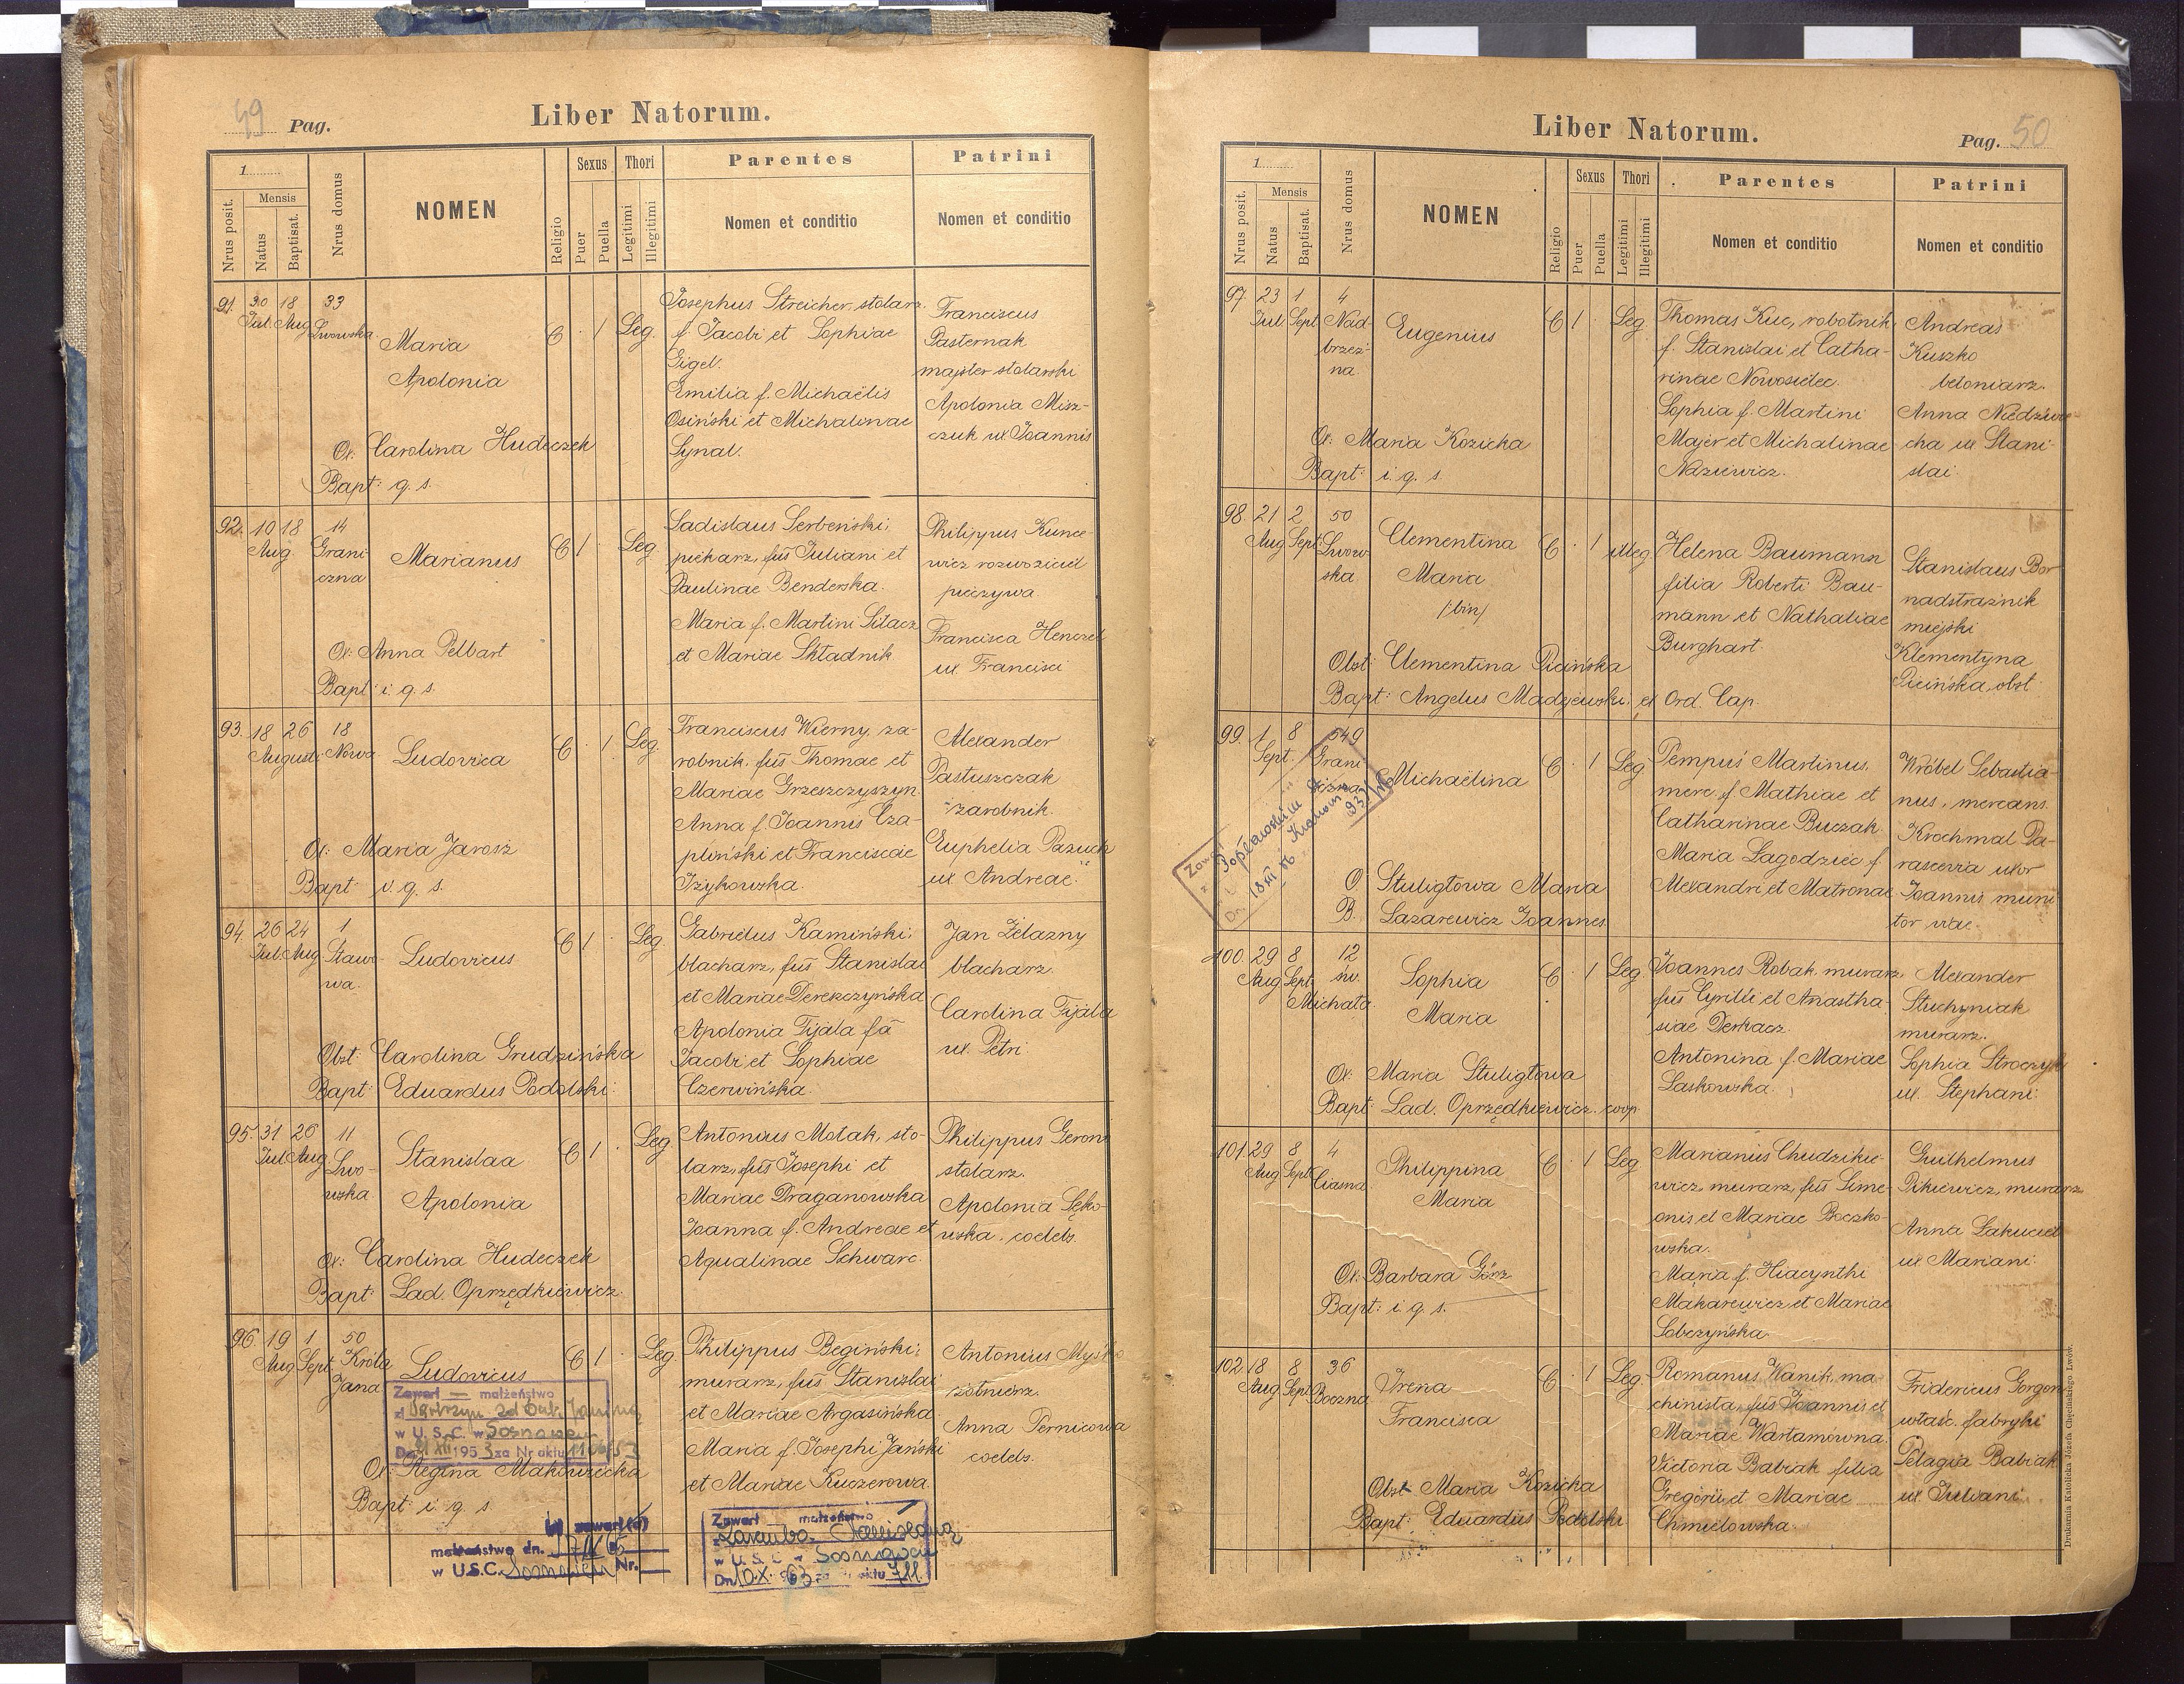 49 Pag.
Liber Natorum.
1
Nrus posit.
Mensis
Natus
Baptisat.
Nrus domus
NOMEN
Religio
Sexus
Puer
Puella
Thori
Legitimi
Illegitimi
Parentes
Nomen et conditio
Patrini
Nomen et conditio
91. 30 18 33
Jul. Aug. Lwowska
Maria
Apolonia
C · 1 Leg.
Josephus Streicher, stolarz.
f. Jacobi et Sophiae
Gigel.
Emilia f. Michaëlis
Osiński et Michalinae
Synal.
Franciscus
Pasternak
majster stolarski
Apolonia Misz-
czuk ux. Joannis
O: Carolina Hudeczek
Bapt: q. s.
92. 10 18 14
Aug. Grani-
czna
Marianus
C 1 · Leg.
Ladislaus Serbeński,
piekarz, fus Juliani et
Paulinae Benderska.
Maria f. Martini Sitacz
et Mariae Składnik
Philippus Kunce-
wicz rozwoziciel
pieczywa
Francisca Henczel
ux Francisci
O: Anna Pelbart
Bapt: i. q. s.
93. 18 26 18
Augusti Nowa
Ludovica
C · 1 Leg.
Franciscus Wierny, za-
robnik, fus Thomae et
Mariae Grzeszczyszyn
Anna f. Joannis Cza-
pliński et Franciscae
Iżykowska.
Alexander
Pastuszczak
zarobnik.
Euphelia Pazuck
ux Andreae.
O: Maria Jarosz
Bapt: i. q. s.
94. 26 24 1
Jul. Aug. Stawo-
wa.
Ludovicus
C 1 · Leg.
Gabrielus Kamiński,
blacharz, fus Stanislai
et Mariae Dereszczyńska
Apolonia Fijała fa
Jacobi et Sophiae
Czerwińska.
Jan Żelazny
blacharz.
Carolina Fijała
ux. Petri
Obst: Carolina Grudzińska
Bapt: Eduardus Podolski.
95. 31 26 11
Jul Aug Lwo-
wska
Stanislaa
Apolonia
C 1 · Leg
Antonius Motak, sto-
larz, fus Josephi et
Mariae Draganowska
Joanna f. Andreae et
Aqualinae Schwarc.
Philippus Geron
stolarz.
Apolonia Sęko-
wska, coelebs.
O: Carolina Hudeczek
Bapt: Lad. Oprzędkiewicz.
96. 19 1 50
Aug Sept. Króla
Jana
Ludovicus
C 1 · Leg.
Philippus Begiński,
murarz, fus Stanislai
et Mariae Argasińska
Maria f. Josephi Jański
et Mariae Kuczerowa.
Antonius
żołnierz.
Anna Pernicowa
coelebs.
Zawarł — małżeństwo
w U.S.C. w Sosnowcu
Dn. XII 1953 za Nr aktu
O: Regina Makowiecka
Bapt: i. q. s
zawarł(a)
małżeństwo dn.
w U.S.C. Sosnowcu Nr.
Zawarł małżeństwo
w U.S.C. w Sosnowcu
Dn. 10.X. 63 za aktu 711
Liber Natorum.
Pag. 50
1
Nrus posit.
Mensis
Natus
Baptisat.
Nrus domus
NOMEN
Religio
Sexus
Puer
Puella
Thori
Legitimi
Illegitimi
Parentes
Nomen et conditio
Patrini
Nomen et conditio
97. 23 1 4
Jul. Sept. Nad-
brzeż-
na
Eugenius
C 1 · Leg
Thomas Kuc, robotnik
f. Stanislai et Catha-
rinae Nowosielec.
Sophia f. Martini
Majer et Michalinae
Naziewicz.
Andreas
Kuszko
betoniarz.
Anna Niedźwie-
cha ux Stani-
slai
O: Maria Kozicka
Bapt: i. q. s.
98. 21 2 50
Aug Sept. Lwow-
ska.
Clementina
Maria
/:bin/
C · 1 illeg.
Helena Baumann
filia Roberti Bau-
mann et Nathaliae
Burghart.
Stanislaus Bor
nadstrażnik
miejski
Klementyna
Picińska, obst.
Obst: Clementina Picińska
Bapt: Angelus Madejewski, ex Ord. Cap.
99. 1 8 549
Sept. Grani-
czna
Michaëlina
C · 1 Leg.
Pempuś Martinus,
merc. f. Mathiae et
Catharinae Buczak.
Maria Łagodzieć f.
Alexandri et Matronae
Wróbel Sebastia-
nus, mercans.
Krochmal Pa-
rascevia uxor
Joannis muni-
tor viae.
O. Stuligłowa Maria
B. Lazarewicz Joannes.
100. 29 8 12
Aug Sept. św.
Michała
Sophia
Maria
C · 1 Leg.
Joannes Robak, murarz,
fus Cyrilli et Anastha-
siae Derkacz.
Antonina f. Mariae
Laskowska.
Alexander
Stuchyniak
murarz.
Sophia Stroczyk
ux. Stephani.
O: Maria Stuligłowa
Bapt: Lad. Oprzędkiewicz, coop.
101. 29 8 4
Aug Sept. Ciasna
Philippina
Maria
C · 1 Leg
Marianus Chudzikie-
wicz, murarz, fus Sime-
onis et Mariae Boczko-
wska.
Maria f. Hiacynthi
Makarewicz et Mariae
Sobczyńska.
Guilhelmus
Pikiewicz, murarz
Anna Łakuciel
ux Mariani.
O: Barbara Górz
Bapt: i. q. s.
102. 18 8 36
Aug Sept. Boczna
Irena
Francisca
C · 1 Leg.
Romanus Wanik, ma-
chinista, fus Joannis et
Mariae Warłamówna.
Victoria Babiak filia
Gregorii et Mariae
Chmielowska.
Fridericus Gorgon
właśc. fabryki
Pelagia Babiak
ux Juliani
Obst: Maria Kozicka
Bapt: Eduardus Podolski
Drukarnia Katolicka Józefa Chęcińskiego Lwów.